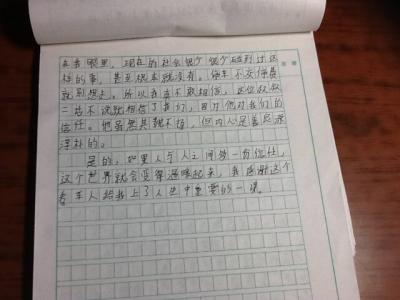 在我眼里，现在的社会很少很少碰到过这
样的事，甚至根本就没有。停车不交停费
就别想走。所以我在不敢相信，这位叔叔
二话不说就相信了我们，因为他对我们的
信任。他虽然其貌不扬，但内心是善良淳
淳朴的。
是的，如果人与人之间多一份信任，
这个世界就会变得温暖起来，我感谢这个
看车人给我上了人生中重要的一课。